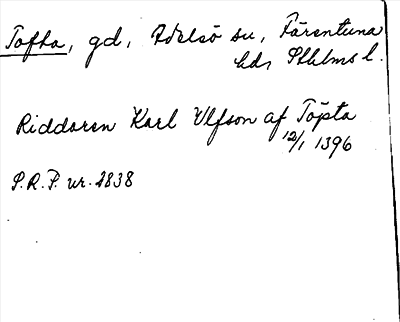 Tofta, gd, Adelsö sn, Färentuna
hd, Sthlms l.
Riddaren Karl Ulfson af Töpta
12/1 1396
P.R.P. nr. 2838